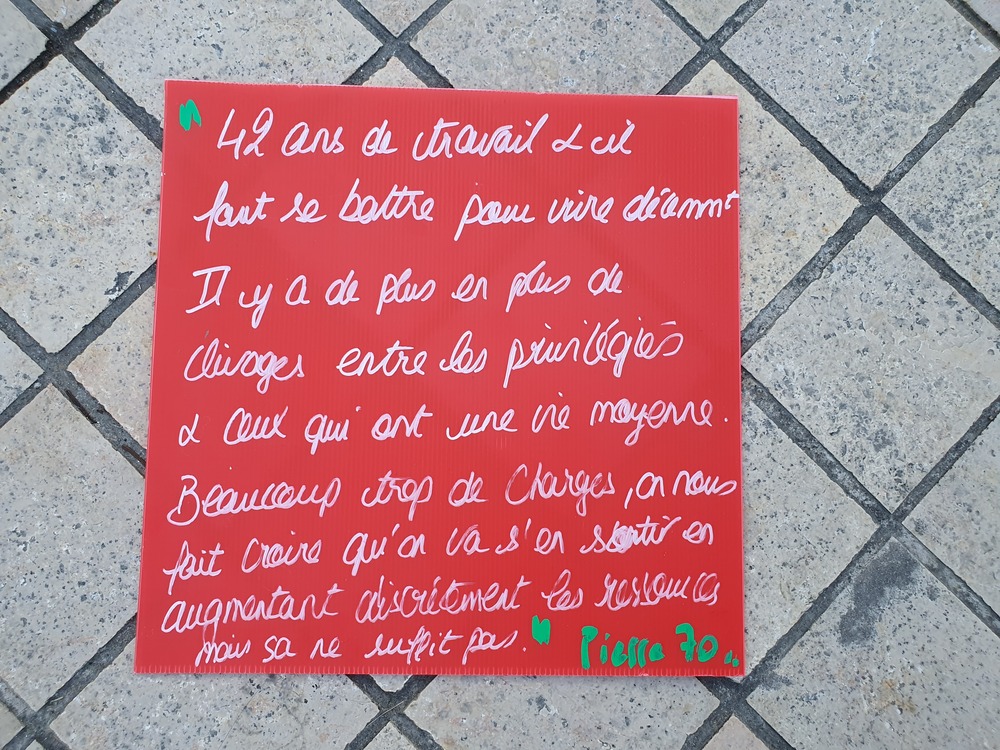 " 42 ans de travail & il
faut se battre pour vivre décemmt
Il y a de plus en plus de
clivages entre les privilégiés
& ceux qui ont une vie moyenne.
Beaucoup trop de charges, on nous
fait croire qu'on va s'en sortir en
augmentant discrètement les ressources
mais sa ne suffit pas. " Pierre 70..